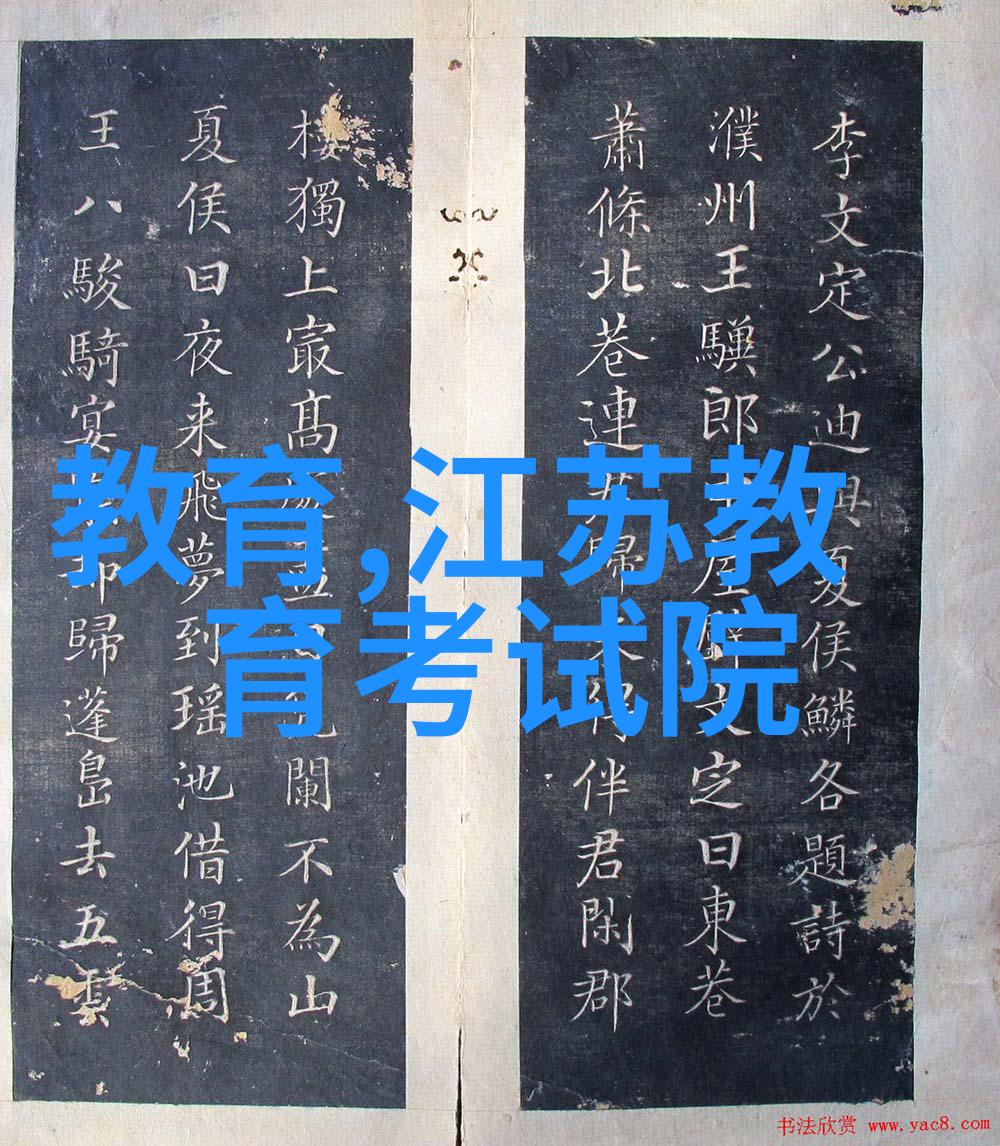 李文定公迪與夏侯鱗各題詩於
濮州王郎文定曰東巷
蕭條北巷連歸未得伴君閑郡
樓獨上最高闌不為山
夏侯曰夜来飛夢到瑶池借得周
王八駿騎宴歸蓬島去五雲
教育,江苏教
育考试院
书法欣赏 www.yac8.com